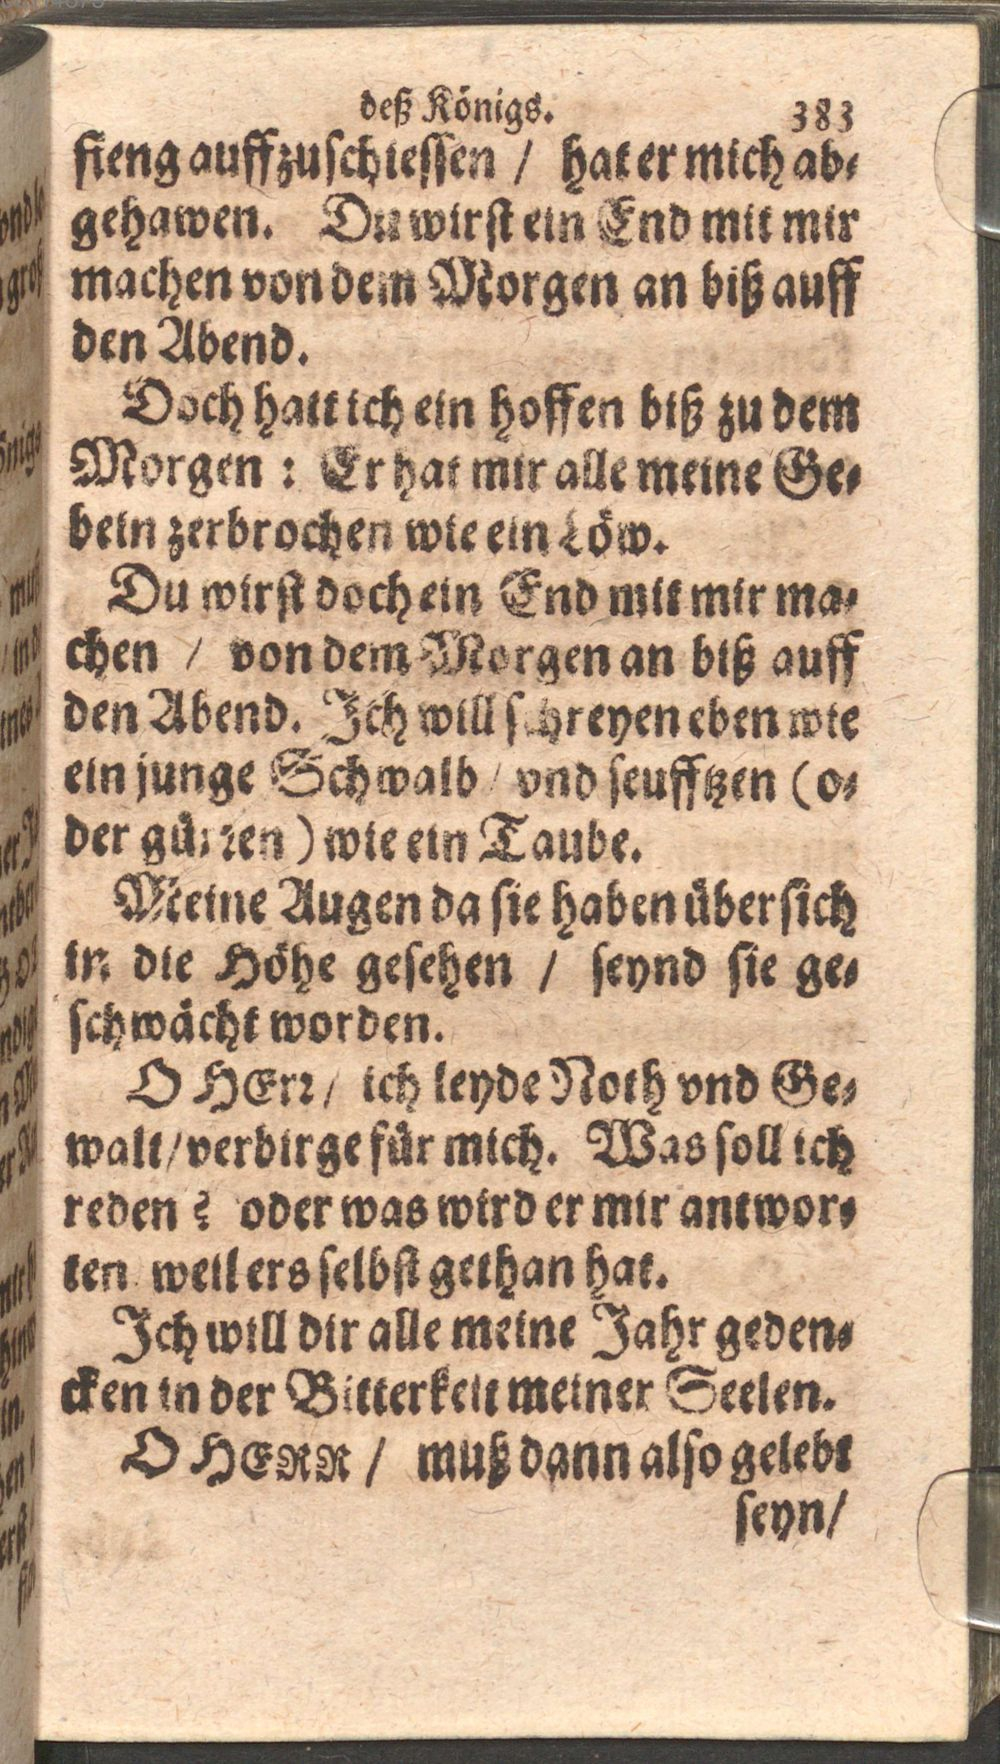 deß Königs. 383
fieng auffzuschiessen / hat er mich ab-
gehawen. Du wirst ein End mit mir
machen von dem Morgen an biß auff
den Abend.
Doch hatt ich ein hoffen biß zu dem
Morgen : Er hat mir alle meine Ge-
bein zerbrochen wie ein Löw.
Du wirst doch ein End mit mir ma-
chen / von dem Morgen an biß auff
den Abend. Ich will schreyen eben wie
ein junge Schwalb / vnd seufftzen (o-
der gürren) wie ein Taube.
Meine Augen da sie haben über sich
in die Höhe gesehen / seynd sie ge-
schwächt worden.
O HErr / ich leyde Noth vnd Ge-
walt / verbirge für mich. Was soll ich
reden ? oder was wird er mir antwor-
ten weil ers selbst gethan hat.
Ich will dir alle meine Jahr geden-
cken in der Bitterkeit meiner Seelen.
O HERR / muß dann also gelebt
seyn /